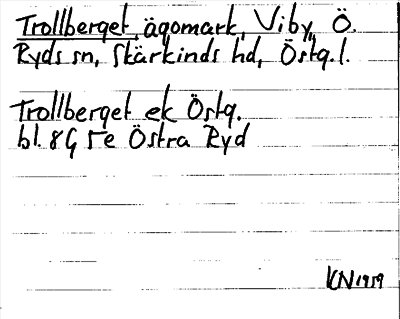 Trollberget, ägomark, Viby, Ö.
Ryds sn, Skärkinds hd, Östg. l.
Trollberget ek Östg.
bl. 8G 5e Östra Ryd
KN 1959